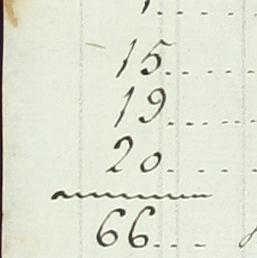 15....
19....
20....
66...